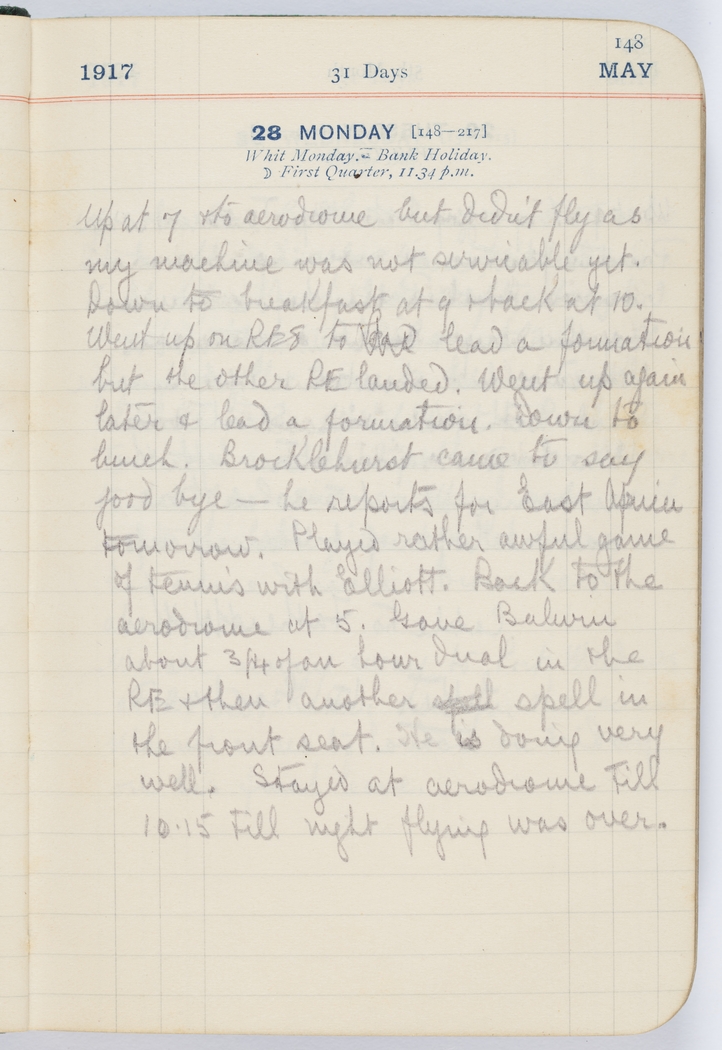 148
1917 31 Days MAY
28 MONDAY [148—217]
Whit Monday.— Bank Holiday.
☽ First Quarter, 11.34 p.m.
Up at 7 & to aerodrome but didn't fly as
my machine was not servicable yet.
Down to breakfast at 9 & back at 10.
Went up on RE8 to lead a formation
but the other RE landed. Went up again
later & lead a formation. Down to
lunch. Brocklehurst came to say
good bye — he reports for East Africa
tomorrow. Played rather awful game
of tennis with Elliott. Back to the
aerodrome at 5. Gave Balwin
about 3/4 of an hour dual in the
RE & then another spell in
the front seat. He is doing very
well. Stayed at aerodrome till
10.15 till night flying was over.